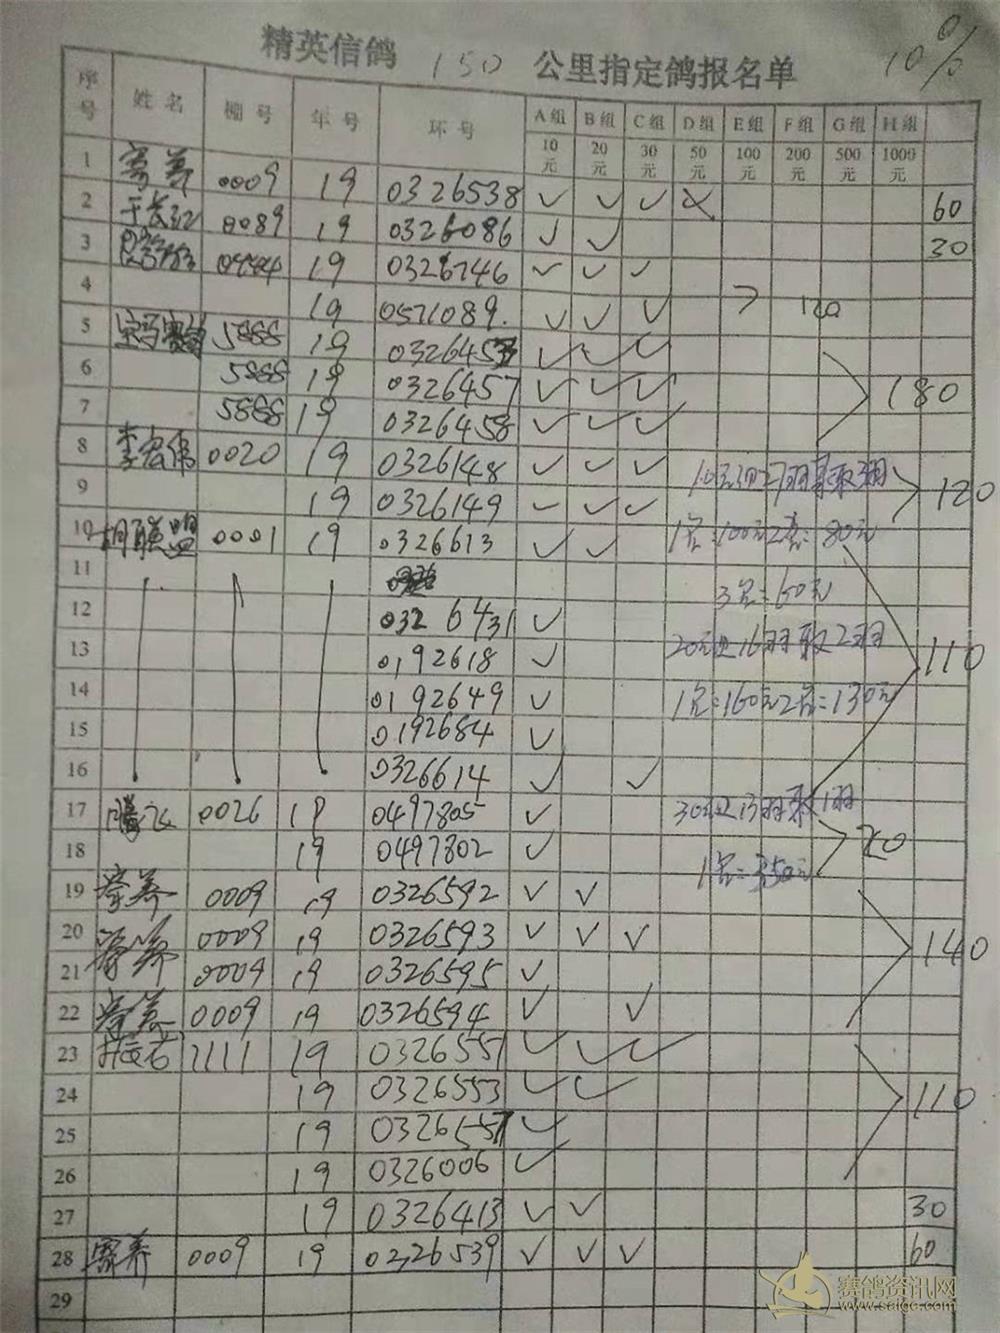 精英信鸽 150 公里指定鸽报名单 10%
序号 姓名 棚号 年号 环号 A组 B组 C组 D组 E组 F组 G组 H组
10元 20元 30元 50元 100元 200元 500元 1000元
1 寄养 0009 19 0326538 ✓ ✓ ✓ 60
2 于长江 0089 19 0326086 ✓ ✓ 30
3 0444 19 0326746 ✓ ✓ ✓
4 19 0571089. ✓ ✓ ✓ 120
5 5888 19 ✓ ✓ ✓
6 5888 19 0326457 ✓ ✓ ✓ 180
7 5888 19 0326458 ✓ ✓ ✓
8 李宏伟 0020 19 0326148 ✓ ✓ ✓ 10元组27羽取3羽
9 19 0326149 ✓ ✓ ✓ 120
10 胡联盟 0001 19 0326613 ✓ ✓ 1名:100元2名:80元
11 3名:60元
12 0326431 ✓
13 0192618 ✓ 20元组16羽取2羽 110
14 0192649 ✓ 1名:160元2名:130元
15 0192684 ✓
16 0326614 ✓ ✓
17 腾飞 0026 19 0497805 ✓ 30组13羽取1羽
18 19 0497802 ✓ 20
1名:350元
19 寄养 0009 19 0326592 ✓ ✓
20 寄养 0009 19 0326593 ✓ ✓ ✓ 140
21 0009 19 0326595 ✓
22 寄养 0009 19 0326594 ✓ ✓
23 1111 19 0326551 ✓ ✓ ✓
24 19 0326553 ✓ ✓ 110
25 19 ✓
26 19 0326006 ✓
27 19 0326413 ✓ ✓ 30
28 寄养 0009 19 0326539 ✓ ✓ ✓ 60
29
赛鸽资讯网
www.saige.com